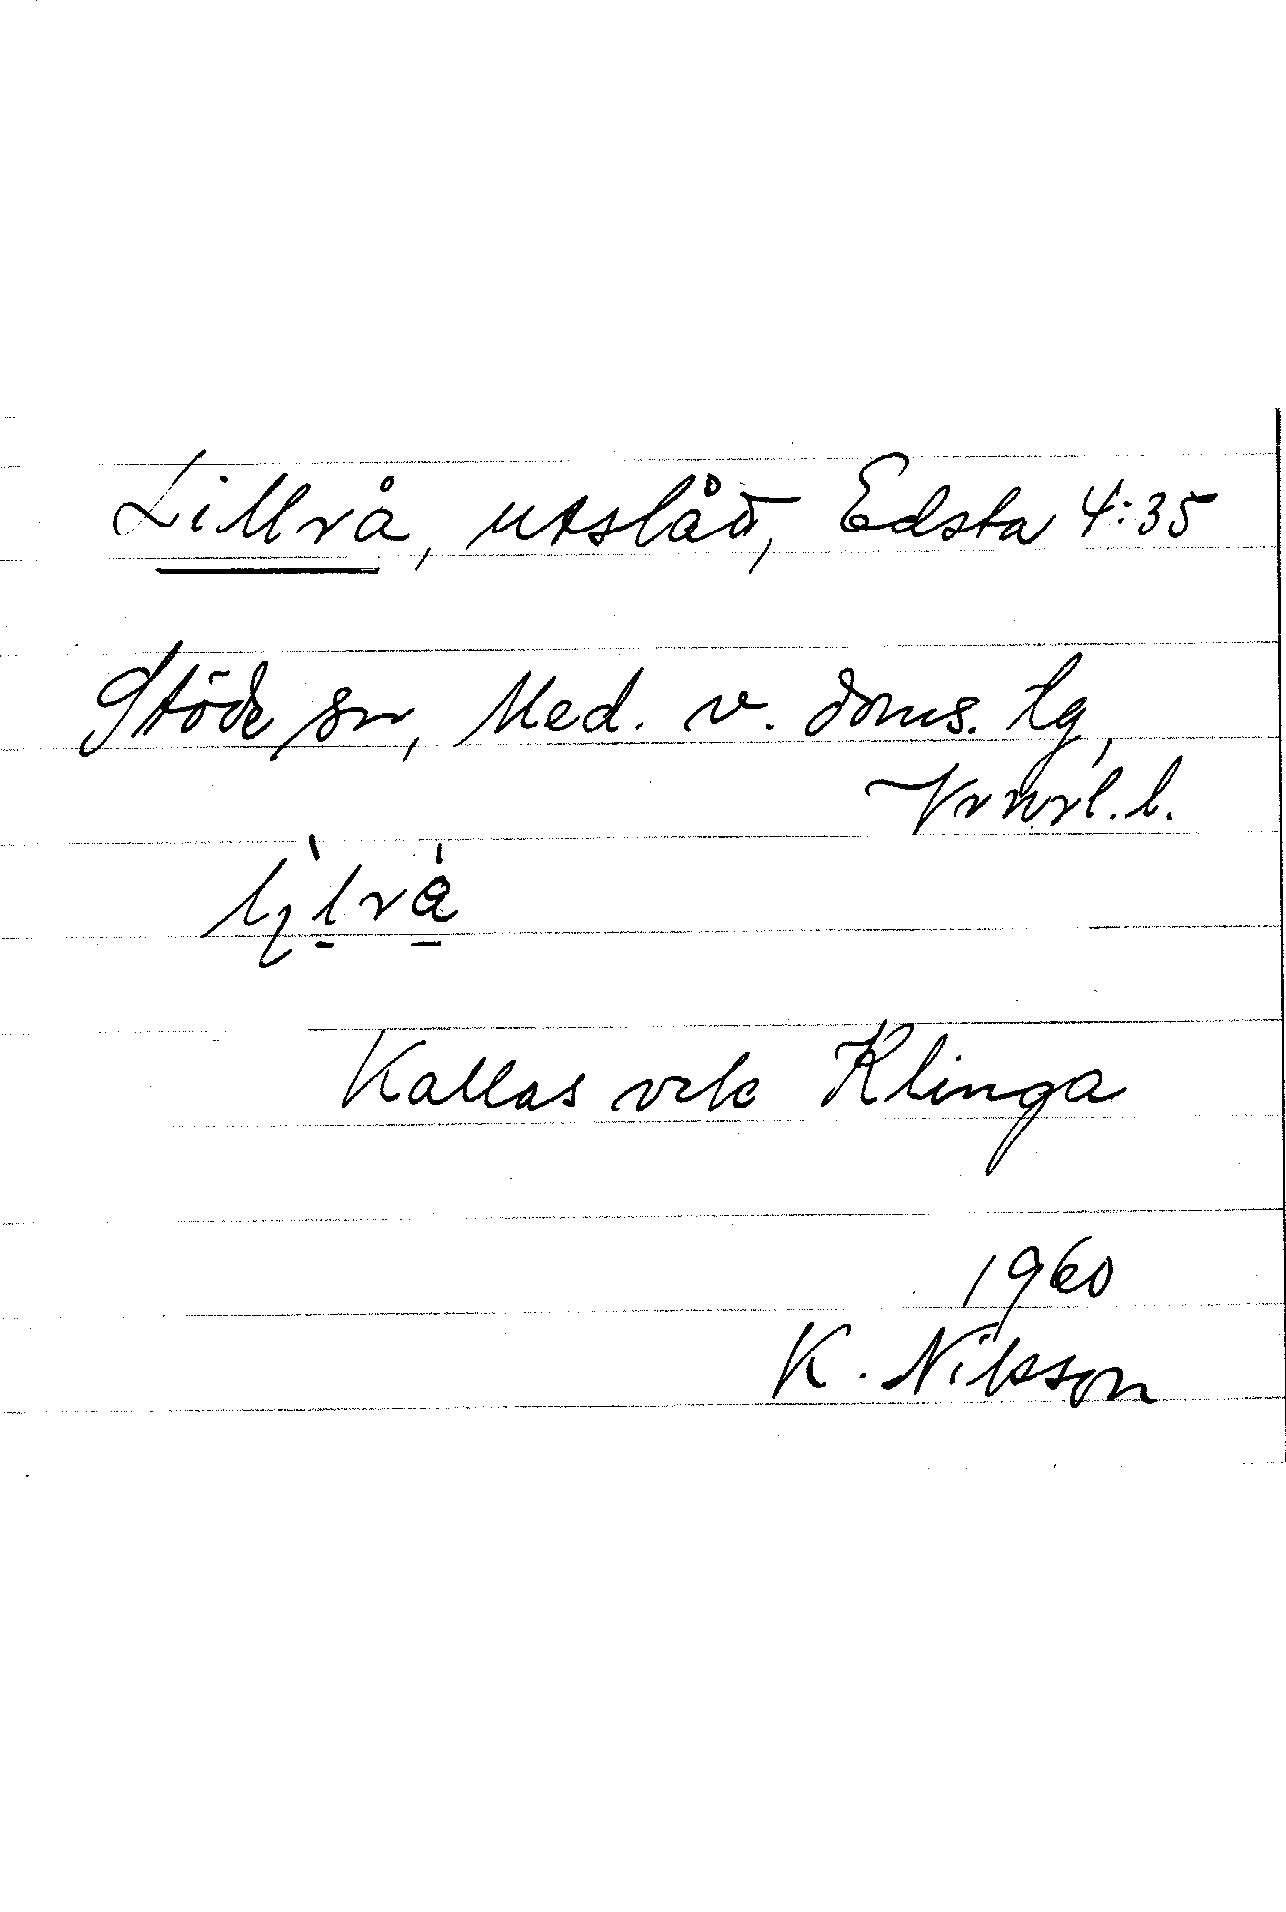 Lillrå, utslått, Edsta 4:35
Stöde sn, Med. v. doms. tg,
Vrnrl. l.
Kallas ock Klinga
1960
K. Nilsson